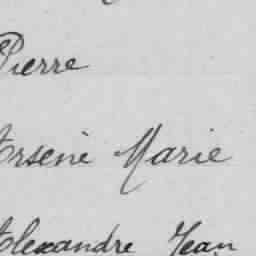 Pierre
Arsène Marie
Alexandre Jean